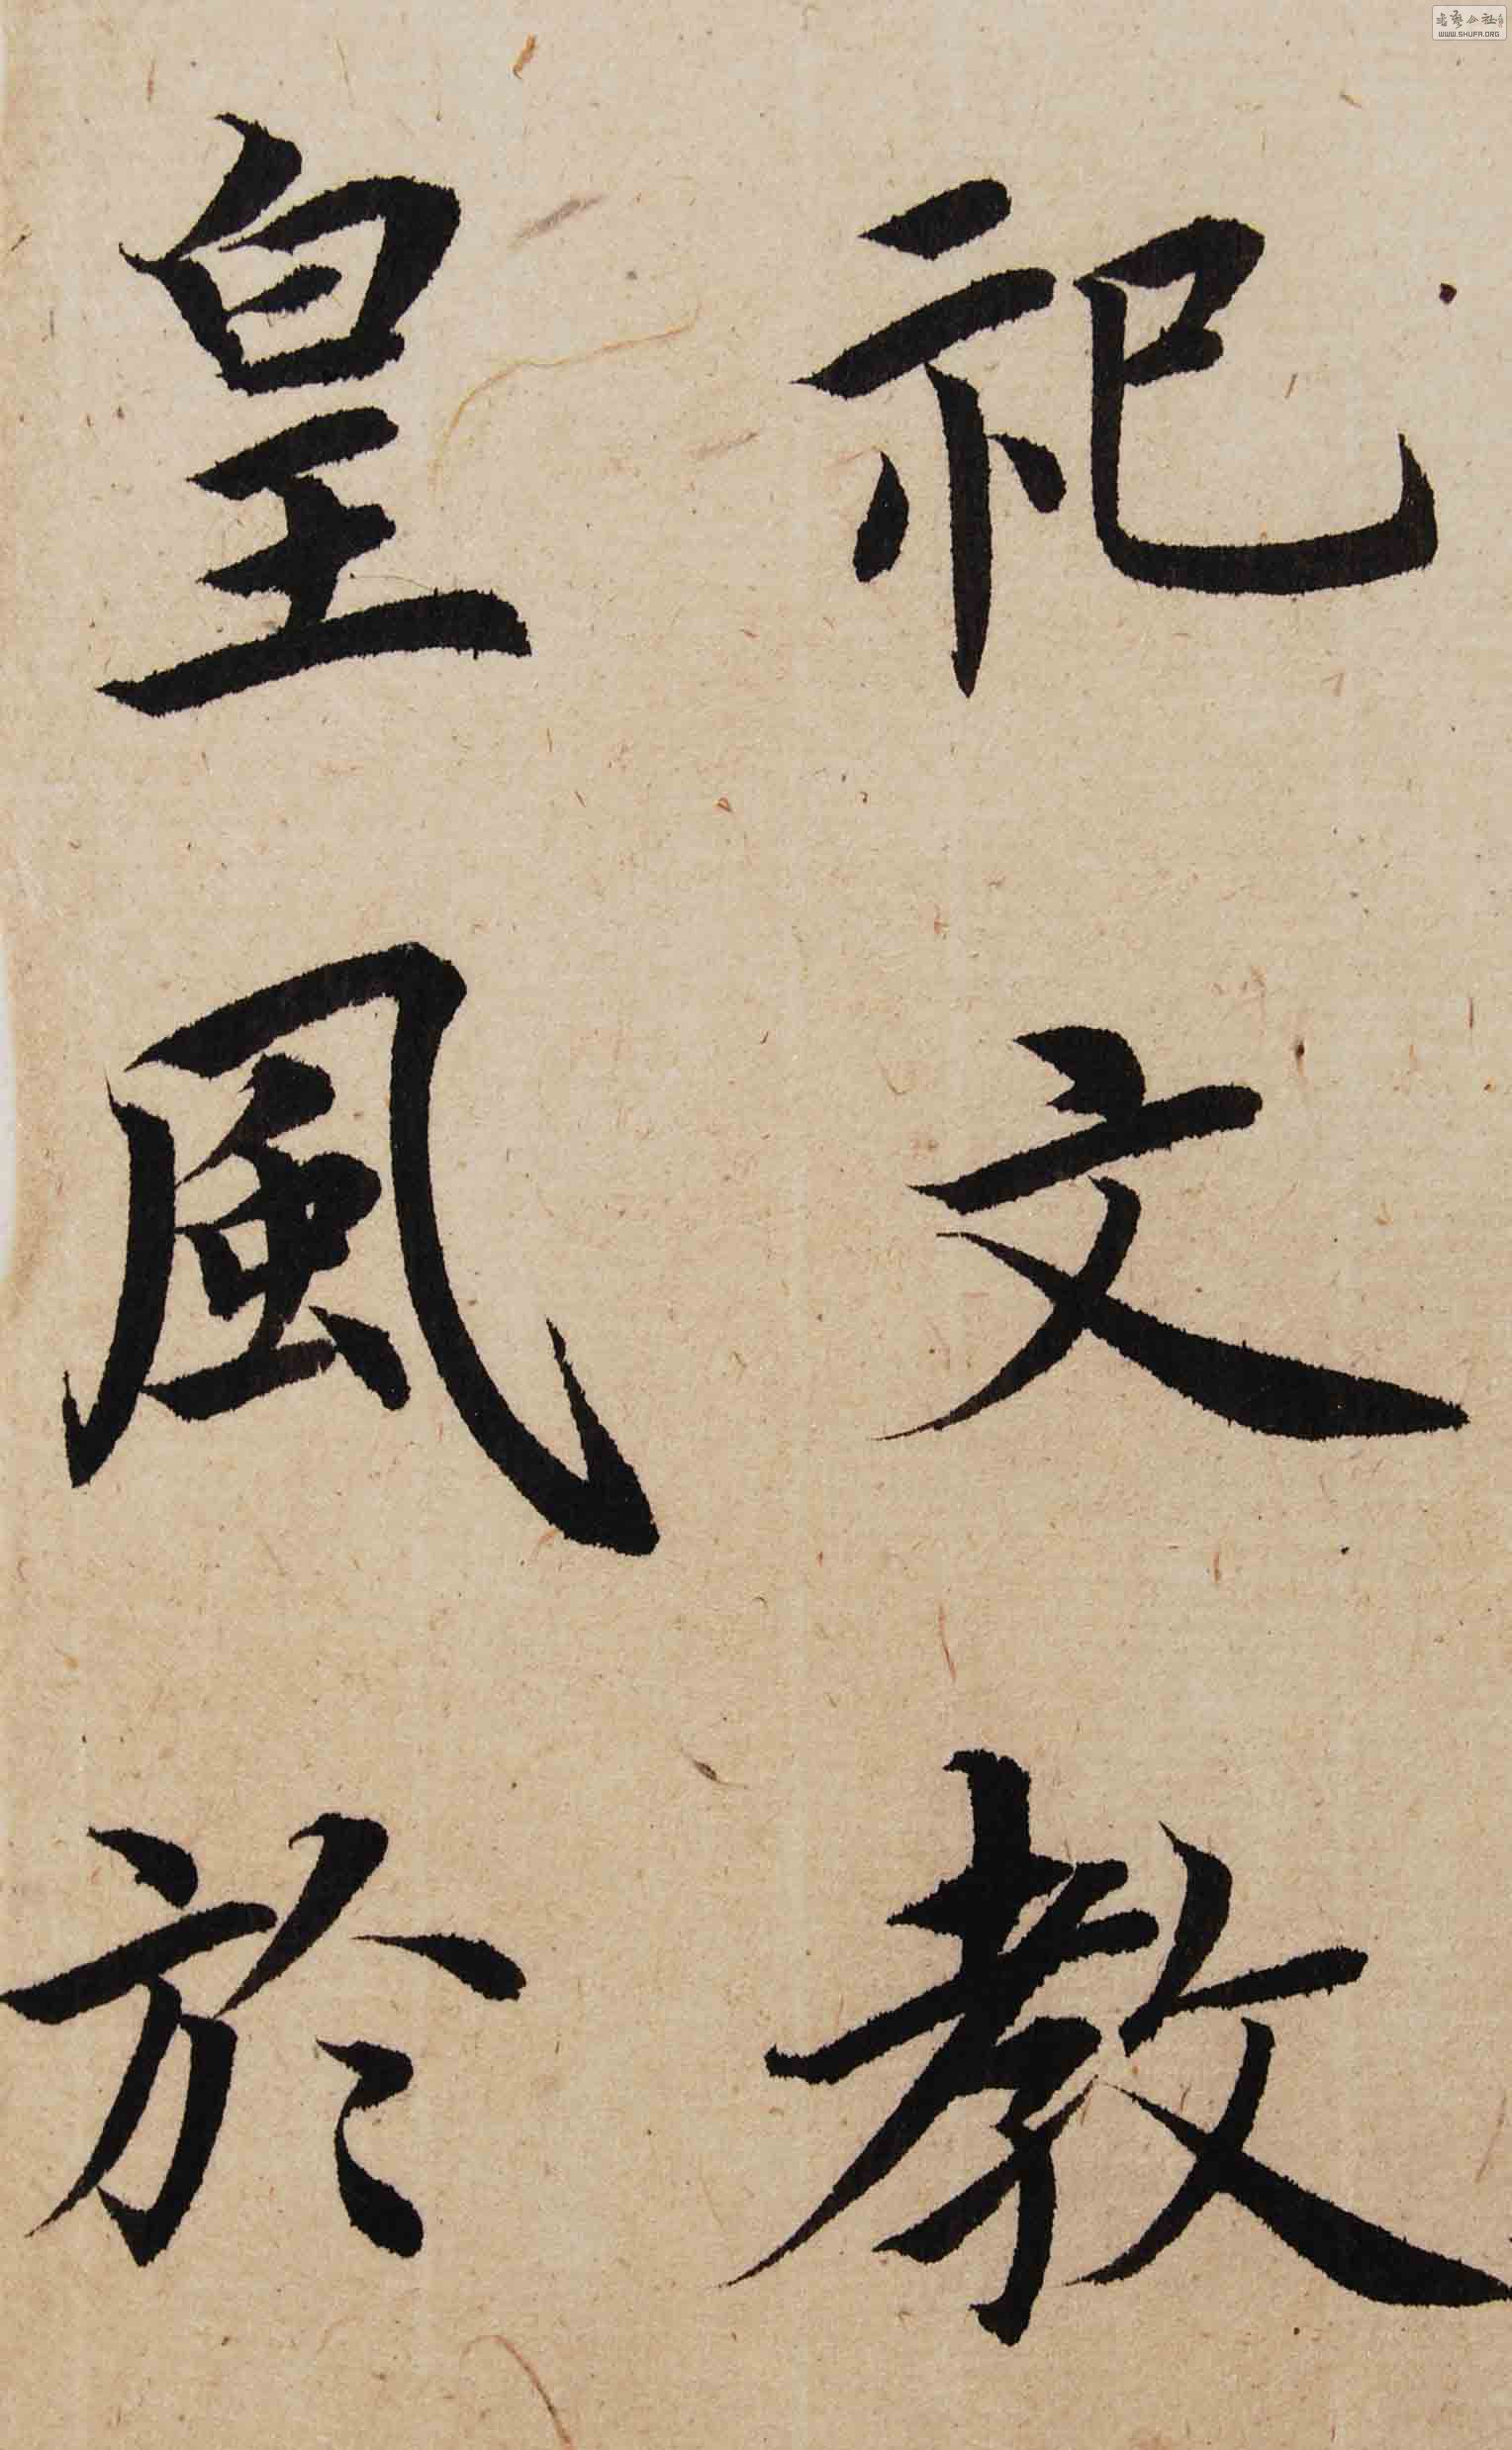 祀文教
皇風於
WWW.SHUFA.ORG